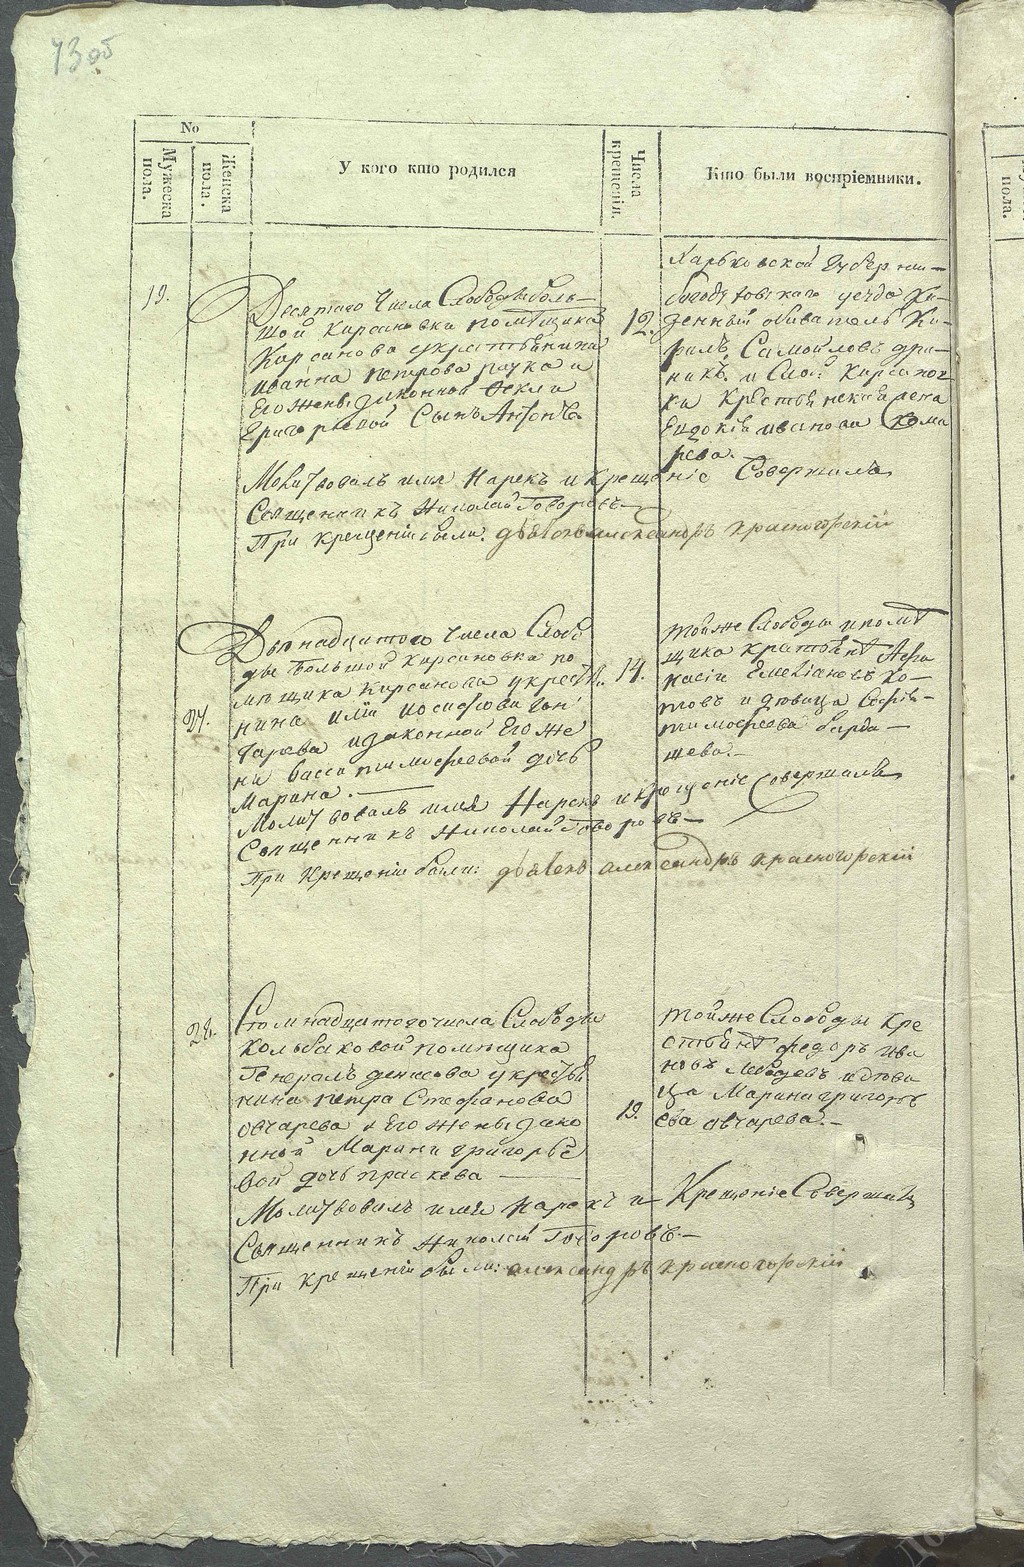 73 об
No
Мужеска пола.
Женска пола.
У кого кто родился
Числа крещенія.
Кто были воспріемники.
19.
Десятаго Числа Слободы боль-
шой Кирсановки помѣщика
Кирсанова укрестьянина
ивана петрова
Его жены законной Фекли
Григорьевой Сынъ Антонъ
12.
Харьковской Губерніи
богодуховскаго уезда
обыватель Ки-
рилъ Самойловъ
и Сло: Кирсанов-
ки Крестьянская жена
Евдокія иванова Кома
рева.
Молитвовалъ имя Нарекъ и Крещеніе Совершилъ
Священникъ Николай Говоровъ
При крещеніи были: дьячокъ александръ красногорскій
27.
Двенадцатого Числа Слобо
ды большой Кирсановки по
мѣщика Кирсанова у кресть
нина иосифова Гон
чарева изаконной Его же
ни Васси тимофеевой дочь
Марина.
14.
тойже Слободы пом
щика Афа
насіи Емеліановъ Ко-
товъ и девица Софія
тимофеева барда-
шева.
Молитвовалъ имя Нарекъ и Крещеніе Совершилъ
Священникъ Николай Говоровъ
При Крещеніи были: дьячокъ александръ красногорскій
28.
Семнадцатого числа Слободы
Кольбаковой помѣщика
Генералъ денисова у кресть
нина петра Стефанова
овчарева и Его жены зако
нной Марини григорье
вой дочь праскева
19.
тойже Слободы Кре
федоръ ива
новъ Лебедевъ идеви
ца Марина григорь
ева овчарева.
Молитвовалъ имя нарекъ и Крещеніе Совершилъ
Священникъ Николай Говоровъ.
При крещеніи были: александръ красногорскій